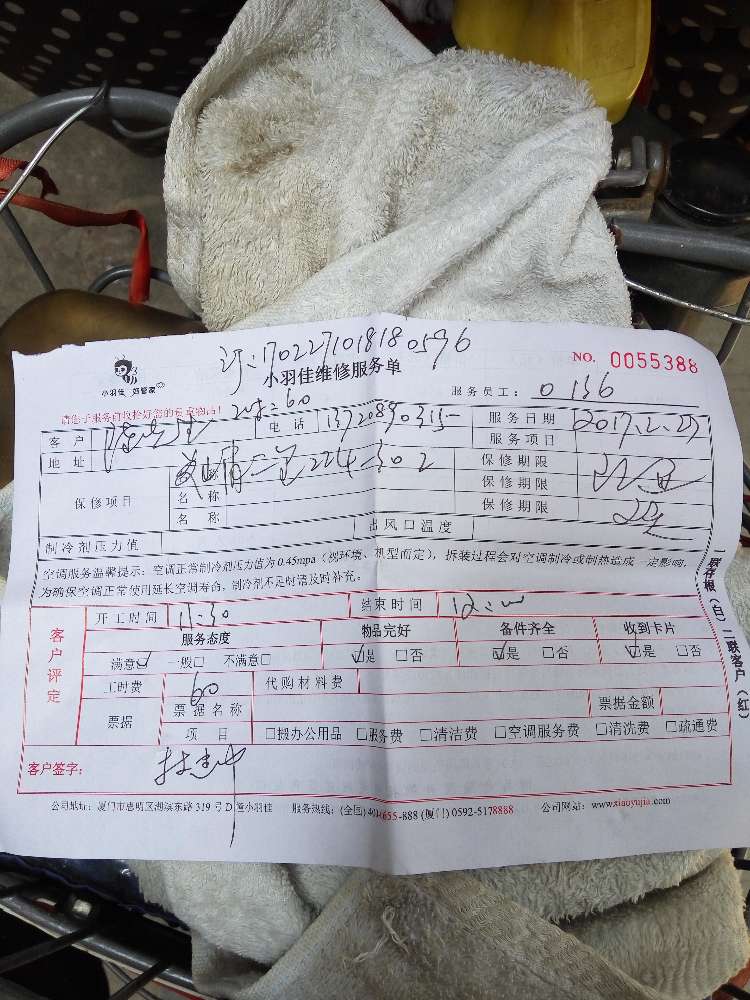 1702271018180596
小羽佳 好管家
小羽佳维修服务单
NO. 0055388
请您于服务前收拾好您的贵重物品!
服务员工: 0136
60
客户
电话
服务日期 2017.2.27
地址
服务项目
保修项目
名称
名称
名称
224-302
保修期限
保修期限
保修期限
制冷剂压力值
出风口温度
空调服务温馨提示: 空调正常制冷剂压力值为0.45mpa (视环境、机型而定), 拆装过程会对空调制冷或制热造成一定影响,
为确保空调正常使用延长空调寿命, 制冷剂不足时请及时补充。
一联存根 (白) 二联客户 (红)
客户评定
开工时间 11:30
结束时间
服务态度 物品完好 备件齐全 收到卡片
满意☑ 一般□ 不满意□ ☑是 □否 ☑是 □否 ☑是 □否
工时费 60 代购材料费
票据
票据名称
票据金额
项目 □搬办公用品 □服务费 □清洁费 □空调服务费 □清洗费 □疏通费
客户签字:
公司地址: 厦门市思明区湖滨东路319号D 小羽佳 服务热线: (全国) 400-655-888 (厦门) 0592-5178888 公司网站: www.xiaoyujia.com